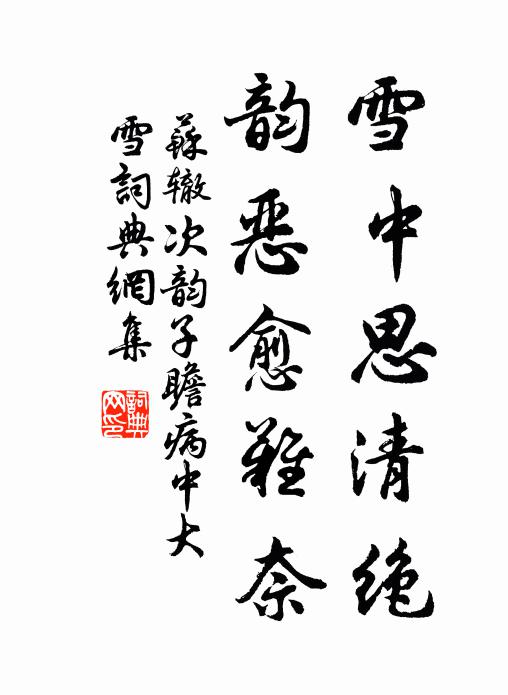 雪中思清绝
韵恶愈难奈
蘇辙次韵子瞻病中大
雪詞典網集
詞典网印